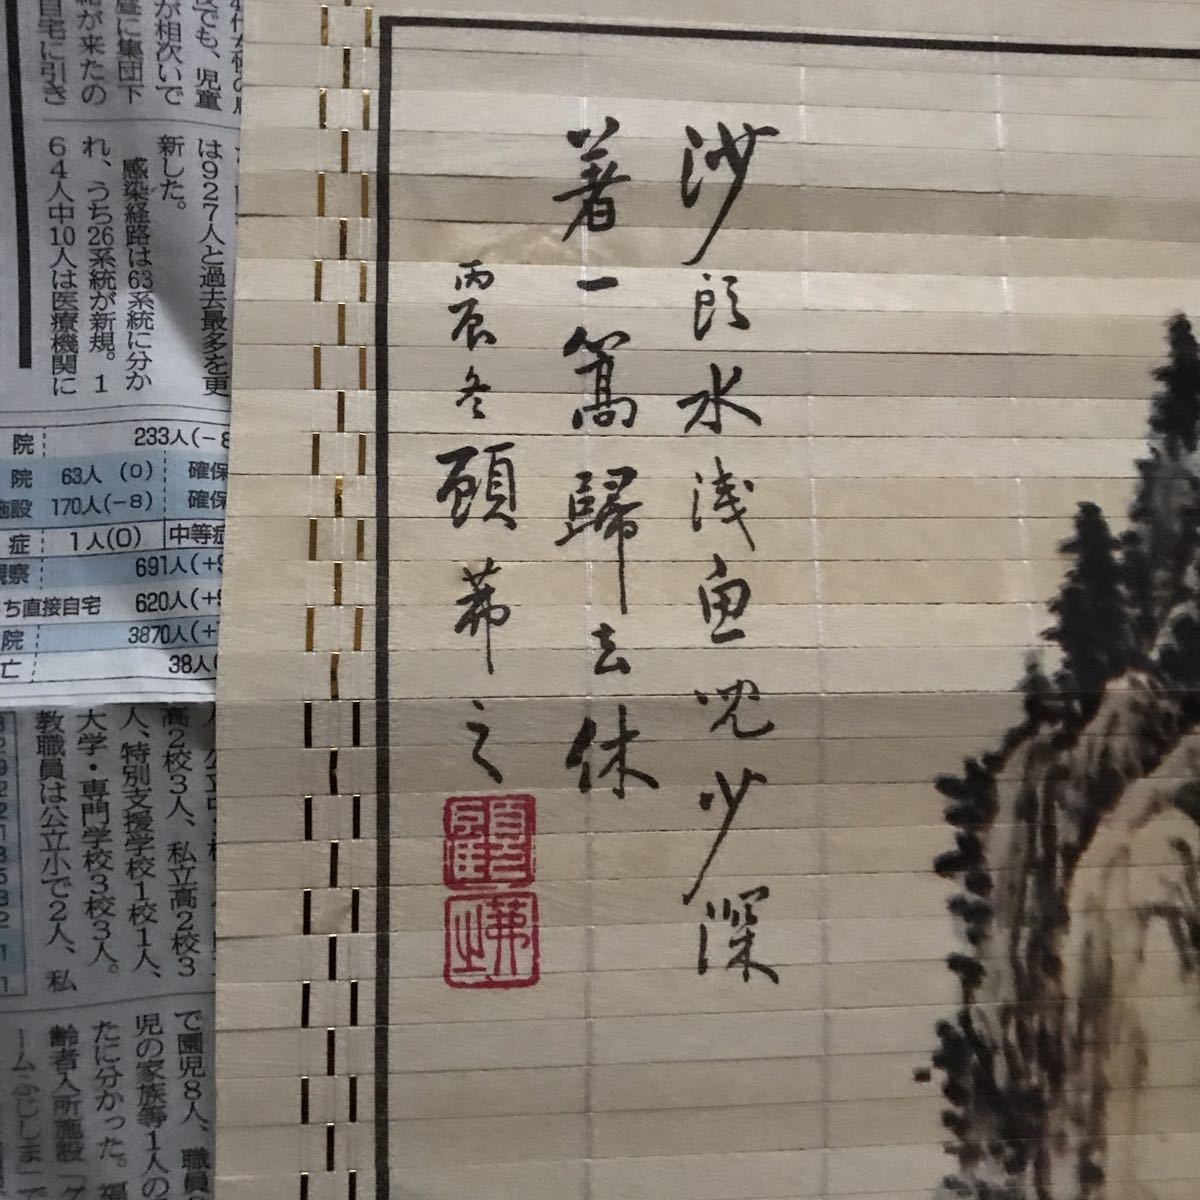 沙頭水浅魚兒少深
著一篙歸去休
丙辰冬顧茀之
でも、児童
が相次いで
昼に集団下
が来たの
自宅に引き
は927人と過去最多を更
新した。
感染経路は63系統に分か
れ、うち26系統が新規。1
64人中10人は医療機関に
院 233人(－8
院 63人 (0) 確保
施設 170人(－8) 確保
症 1人(0) 中等症
観察 691人(+9
ち直接自宅 620人(+9
院 3870人(+
亡 38人(
高2校3人、私立高2校3
人、特別支援学校1校1人、
大学・専門学校3校3人。
教職員は公立小で2人、私
で園児8人、職員
児の家族等1人の
たに分かった。福
齢者入所施設「ケ
ーム ふじしま」で